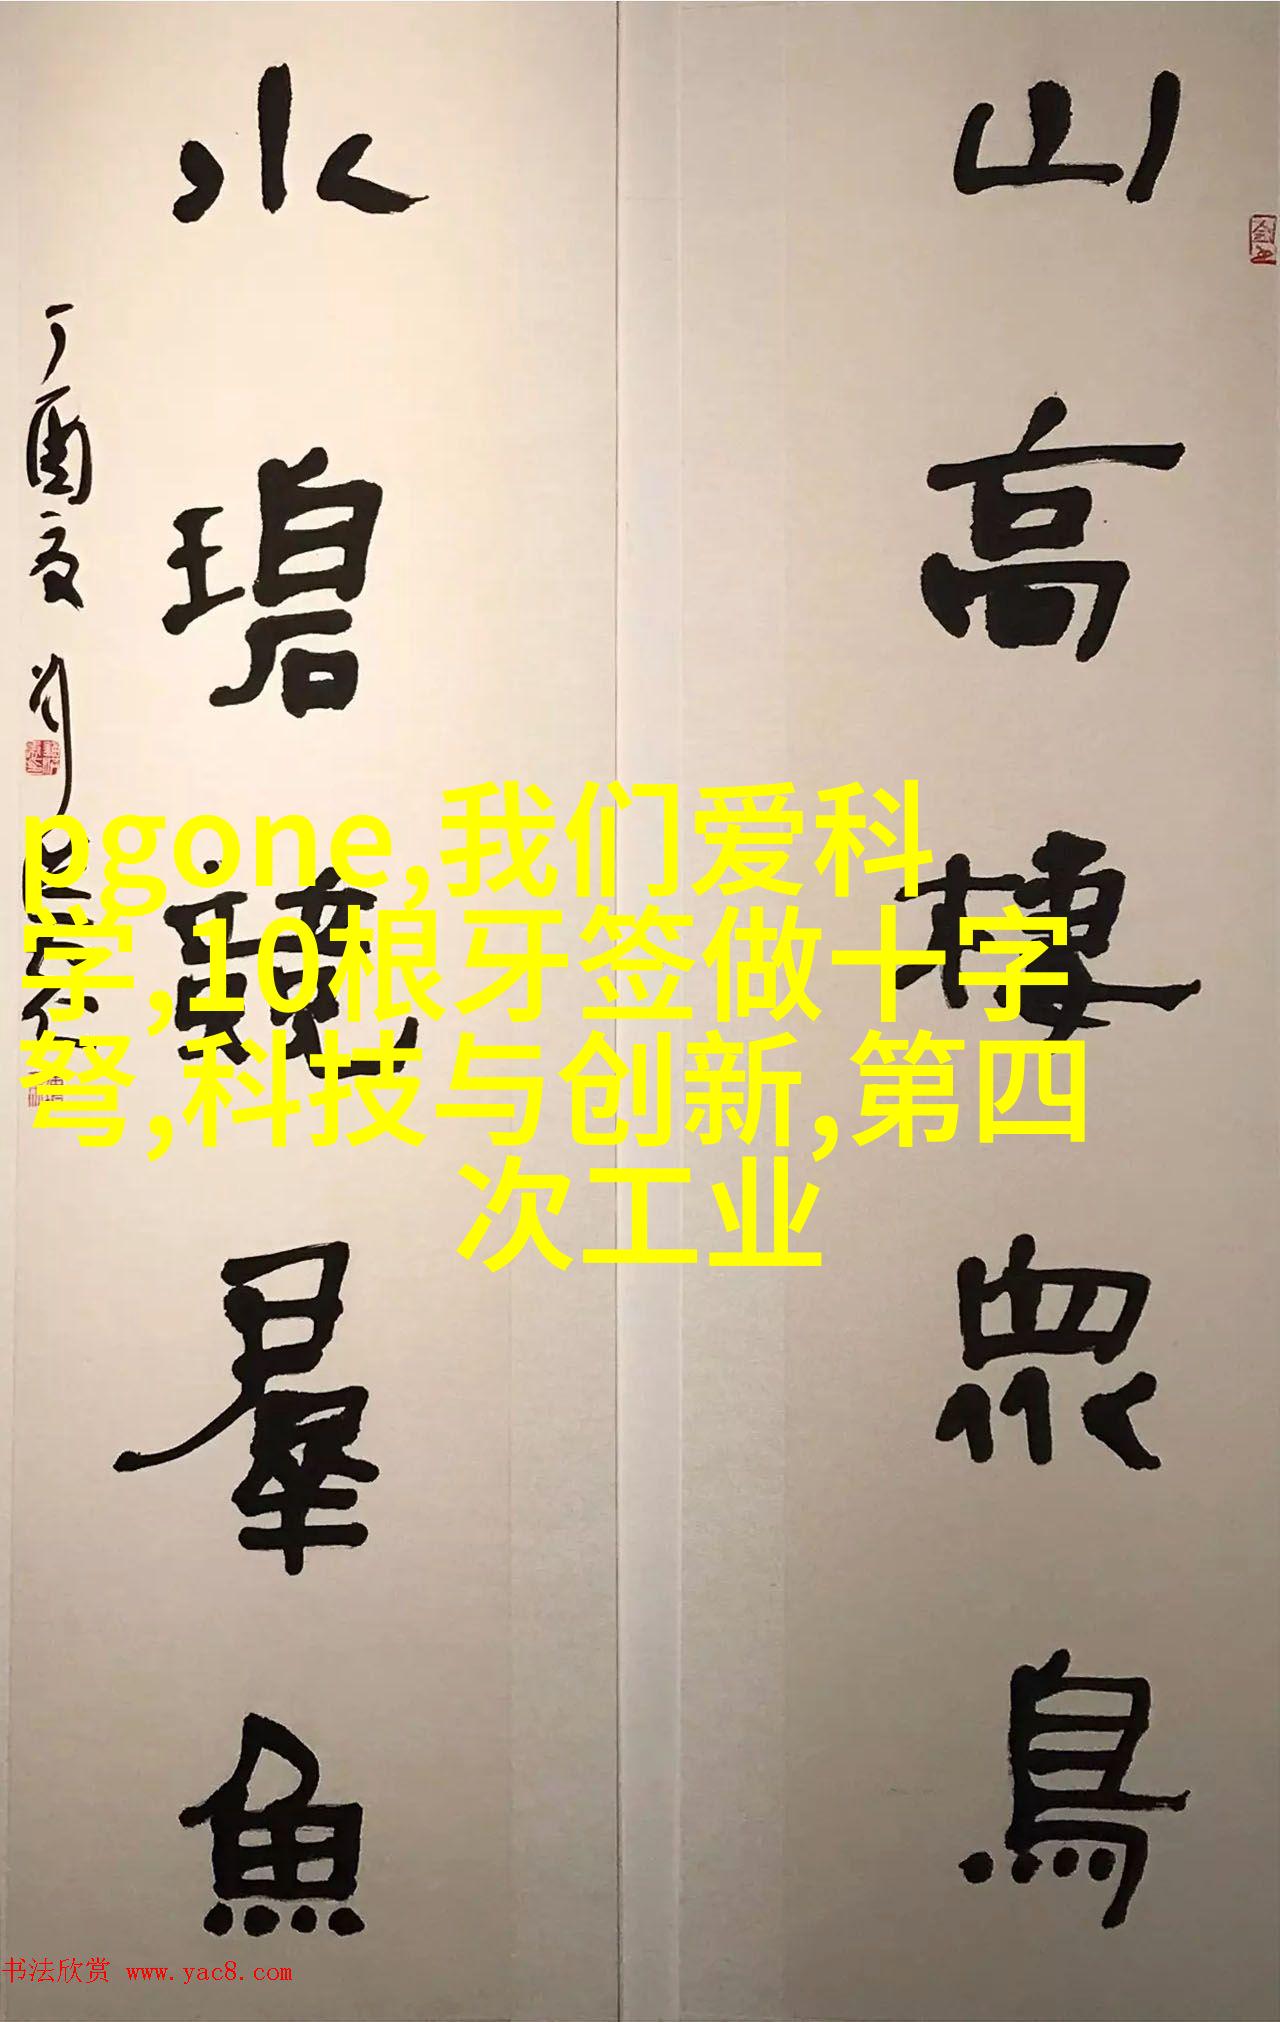 山高棲眾鳥
水碧聽群魚
丁酉夏
pgone,我们爱科
学,10根牙签做十字
弩,科技与创新,第四
次工业
书法欣赏 www.yac8.com